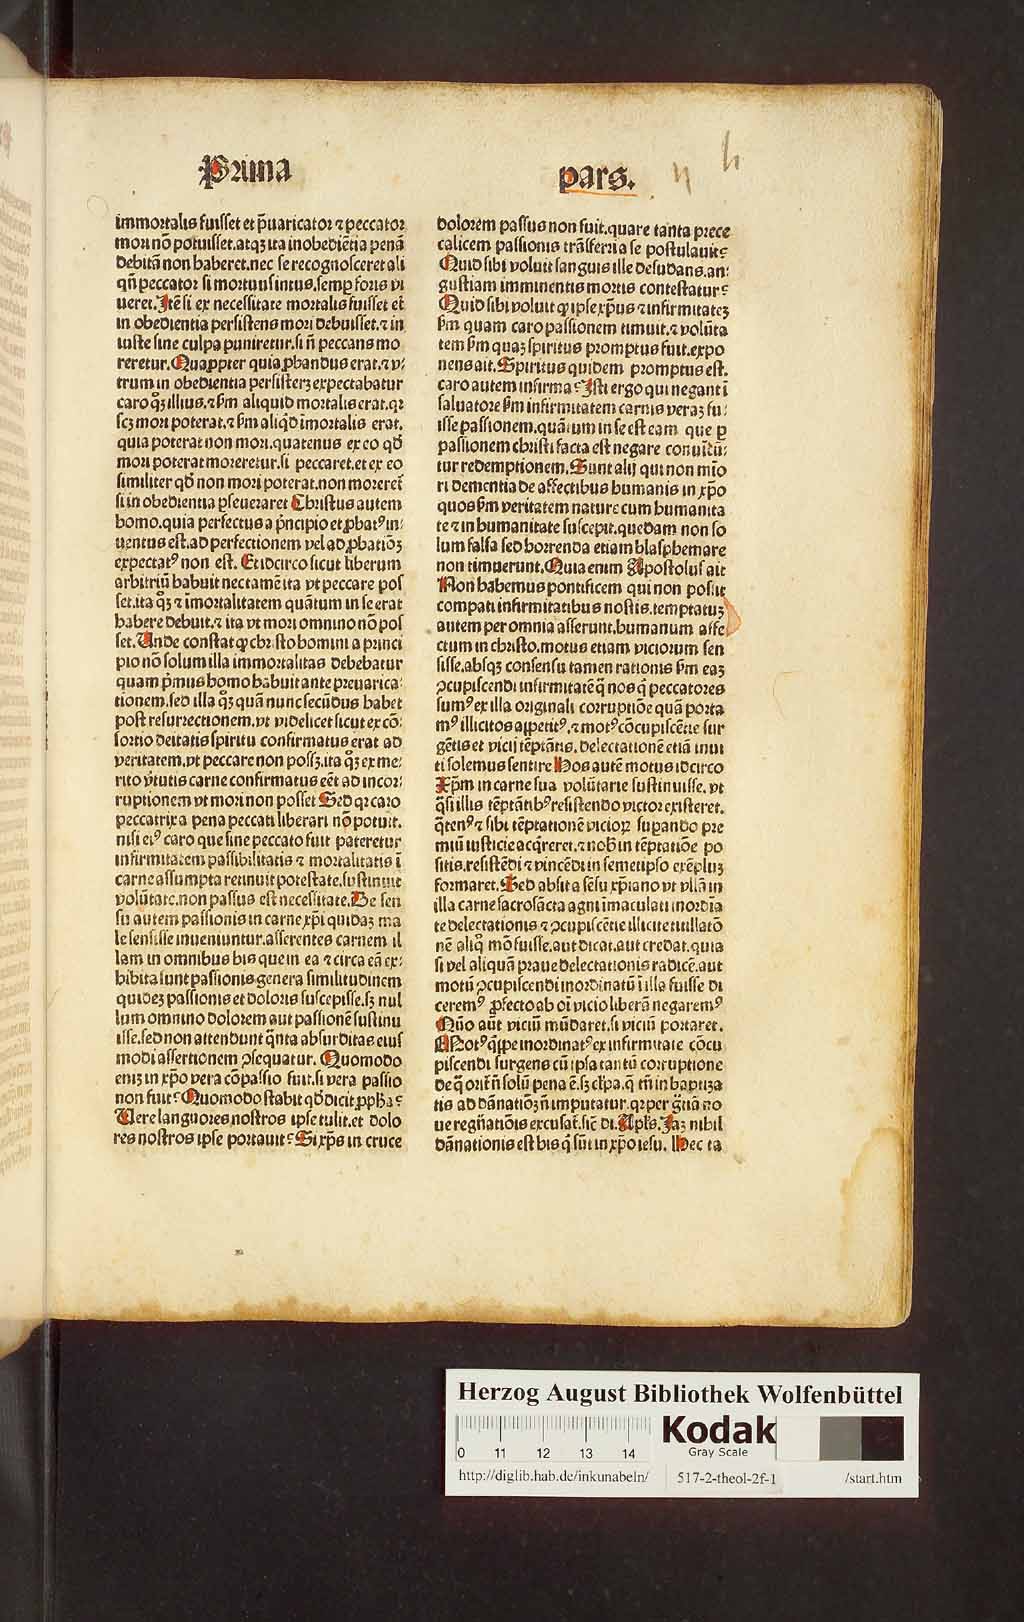 Prima
pars.
immortalis fuisset et p̄uaricator ⁊ peccator
mori nō potuisset. atqꝫ ita inobediētia penā
debitā non haberet. nec se recognosceret ali
qn̄ peccator si mortuus intus, semꝑ foris vi
ueret. Itē si ex necessitate mortalis fuisset et̄
in obedientia persistens mori debuisset. ⁊ in
iuste sine culpa puniretur. si n̄ peccans mo
reretur. Quaꝓpter quia ꝓbandus erat. ⁊ v⸗
trum in obedientia persisterꝫ expectabatur
caro qͦꝫ illius. ⁊ ẜm aliquid mortalis erat. qꝛ
scꝫ mori poterat. ⁊ ẜm aliqͥd īmortalis erat.
quia poterat non mori. quatenus ex eo qd̓
mori poterat moreretur. si peccaret. et ex eo
similiter qd̓ non mori poterat. non moreret̄
si in obedientia ꝑseueraret Christus autem
homo. quia perfectus a pͥncipio et ꝓbatꝰ in⸗
uentus est. ad perfectionem vel ad ꝓbatiōꝫ
expectatꝰ non est. Et idcirco sicut liberum
arbitriū habuit nec tamē ita vt peccare pos
set. ita qͦꝫ ⁊ īmortalitatem quātum in se erat
habere debuit. ⁊ ita vt mori omnino nō pos
set. Unde constat ꝙ christo homini a princi
pio nō solum illa immortalitas debebatur
quam pͥmus homo habuit ante preuarica⸗
tionem. sed illa qͦꝫ quā nunc secūdus habet
post resurrectionem. vt videlicet sicut ex cō⸗
sortio deitatis spiritu confirmatus erat ad
veritatem. vt peccare non possꝫ. ita qͦꝫ ex me⸗
rito v̓tutis carne confirmatus eēt ad incor⸗
ruptionem vt mori non posset Sed qꝛ caro
peccatrix a pena peccati liberari nō potuit.
nisi eiꝰ caro que sine peccato fuit pateretur
infirmitatem passibilitatis ⁊ mortalitatis ī
carne assumpta retinuit potestate. sustinuit
volūtate. non passus est necessitate. De sen
su autem passionis in carne xp̄i quidaꝫ ma
le sensisse inueniuntur. asserentes carnem il
lam in omnibus his que in ea ⁊ circa eā ex⸗
hibita sunt passionis genera similitudinem
quideꝫ passionis et doloris suscepisse. sꝫ nul
lum omnino dolorem aut passionē sustinu
isse. sed non attendunt qͣnta absurditas eius
modi assertionem ꝯsequatur. Quomodo
eniꝫ in xp̄o vera cōpassio fuit. si vera passio
non fuit? Quomodo stabit qd̓ dicit ꝓpħa?
Uere languores nostros ipse tulit. et dolo
res nostros ipse portauit? Si xp̄s in cruce
dolorem passus non fuit. quare tanta prece
calicem passionis trāsferri a se postulauit?
Quid sibi voluit sanguis ille desudans. an⸗
gustiam imminentis mortis contestatur?
Quid sibi voluit ꝙ ipse xp̄us ⁊ infirmitateꝫ
ẜm quam caro passionem timuit. ⁊ volūta
tem ẜm quaꝫ spiritus promptus fuit. expo
nens ait. Spiritus quidem promptus est.
caro autem infirma? Isti ergo qui negant ī
saluatore ẜm infirmitatem carnis veraꝫ fu⸗
isse passionem. quātum in se est eam que ꝑ
passionem christi facta est negare conuīcū⸗
tur redemptionem. Sunt alij qui non mīo
ri dementia de affectibus humanis in xp̄o
quos ẜm veritatem nature cum humanita
te ⁊ in humanitate suscepit. quedam non so
lum falsa sed horrenda etiam blasphemare
non timuerunt. Quia enim Apostolus ait
Non habemus pontificem qui non possit
compati infirmitatibus nostis. temptatuꝫ
autem per omnia asserunt. humanum affe
ctum in christo. motus etiam viciorum sen
sisse. absqꝫ consensu tamen rationis ẜm eaꝫ
ꝯcupiscendi infirmitatē qͣ nos qͥ peccatores
sumꝰ ex illa originali corruptiōe quā porta
mꝰ illicitos appetitꝰ. ⁊ motꝰ cōcupiscētie sur
gētis et vicij tēptātis. delectationē etiā inui
ti solemus sentire Hos autē motus idcirco
Xp̄m in carne sua volūtarie sustinuisse. vt
qͣsi illis tēptātibꝰ resistendo victor existeret.
qͣtenꝰ ⁊ sibi tēptationē vicioꝝ suꝑando pre
miū iusticie acqͥreret. ⁊ nob̓ in tēptatiōe po
sitis. resistēdi ⁊ vincēdi in semetipso exēpluꝫ
formaret. Sed absit a sēsu xp̄iano vt vllā in
illa carne sacrosācta agni īmaculati inordīa
te delectationis ⁊ ꝯcupiscētie illicite titillatō
nē aliqͦ mō fuisse. aut dicat. aut credat. quia
si vel aliquā praue delectationis radicē. aut
motū ꝯcupiscendi inordinatū ī illa fuisse di
ceremꝰ ꝓfecto ab oī vicio liberā negaremꝰ
Quō aūt viciū mūdaret. si viciū portaret.
Motꝰ qͥppe inordinatꝰ ex infirmitate cōcu
piscendi surgens cū ipsa tantū corruptione
de qͣ orit̄ n̄ solū pena ē. sꝫ cl̓pa. q̄ tn̄ in baptiza
tis ad dānatiōꝫ n̄ imputatur. qꝛ per gr̄aꝫ no
ue regn̄atiōis excusat̄. sic̄ di. Apl̓s. Jaꝫ nihil
dānationis est his qͥ sūt in xp̄o iesu. Hec ta
Herzog August Bibliothek Wolfenbüttel
0 11 12 13 14
Kodak
Gray Scale
http://diglib.hab.de/inkunabeln/ 517-2-theol-2f-1 /start.htm